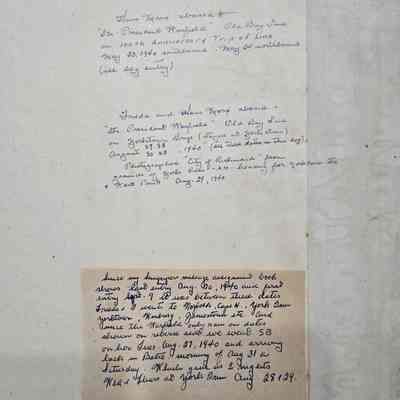 Hans Marx aboard
"Str. President Warfield" Old Bay Line
on 100th Anniversary Trip of Line
May 23, 1940 southbound May 24 northbound
(see log entry)
Freda and Hans Marx aboard
"Str. President Warfield" Old Bay Line
on Yorktown Days (stayed at Yorktown)
August 27, 28
30 1940 (see dates on this day).
Photographed "City of Richmond" from
of York River heading for
West Point Aug. 29, 1940
Since my mileage assignment book
shows last entry Aug. 26, 1940 and first
entry Sept. 9 it was between these dates
Freda & I went to Norfolk, Cape H., York Town
Yorktown, Newberg, Jamestown etc. And
since the Warfield only ran on dates
shown on reverse side we went SB
on her Tues. Aug. 27, 1940 and arriving
back in Balto morning of Aug 31 a
Saturday. Which gave us 2 nights
Wed & Thurs at York Town Aug 28 & 29.